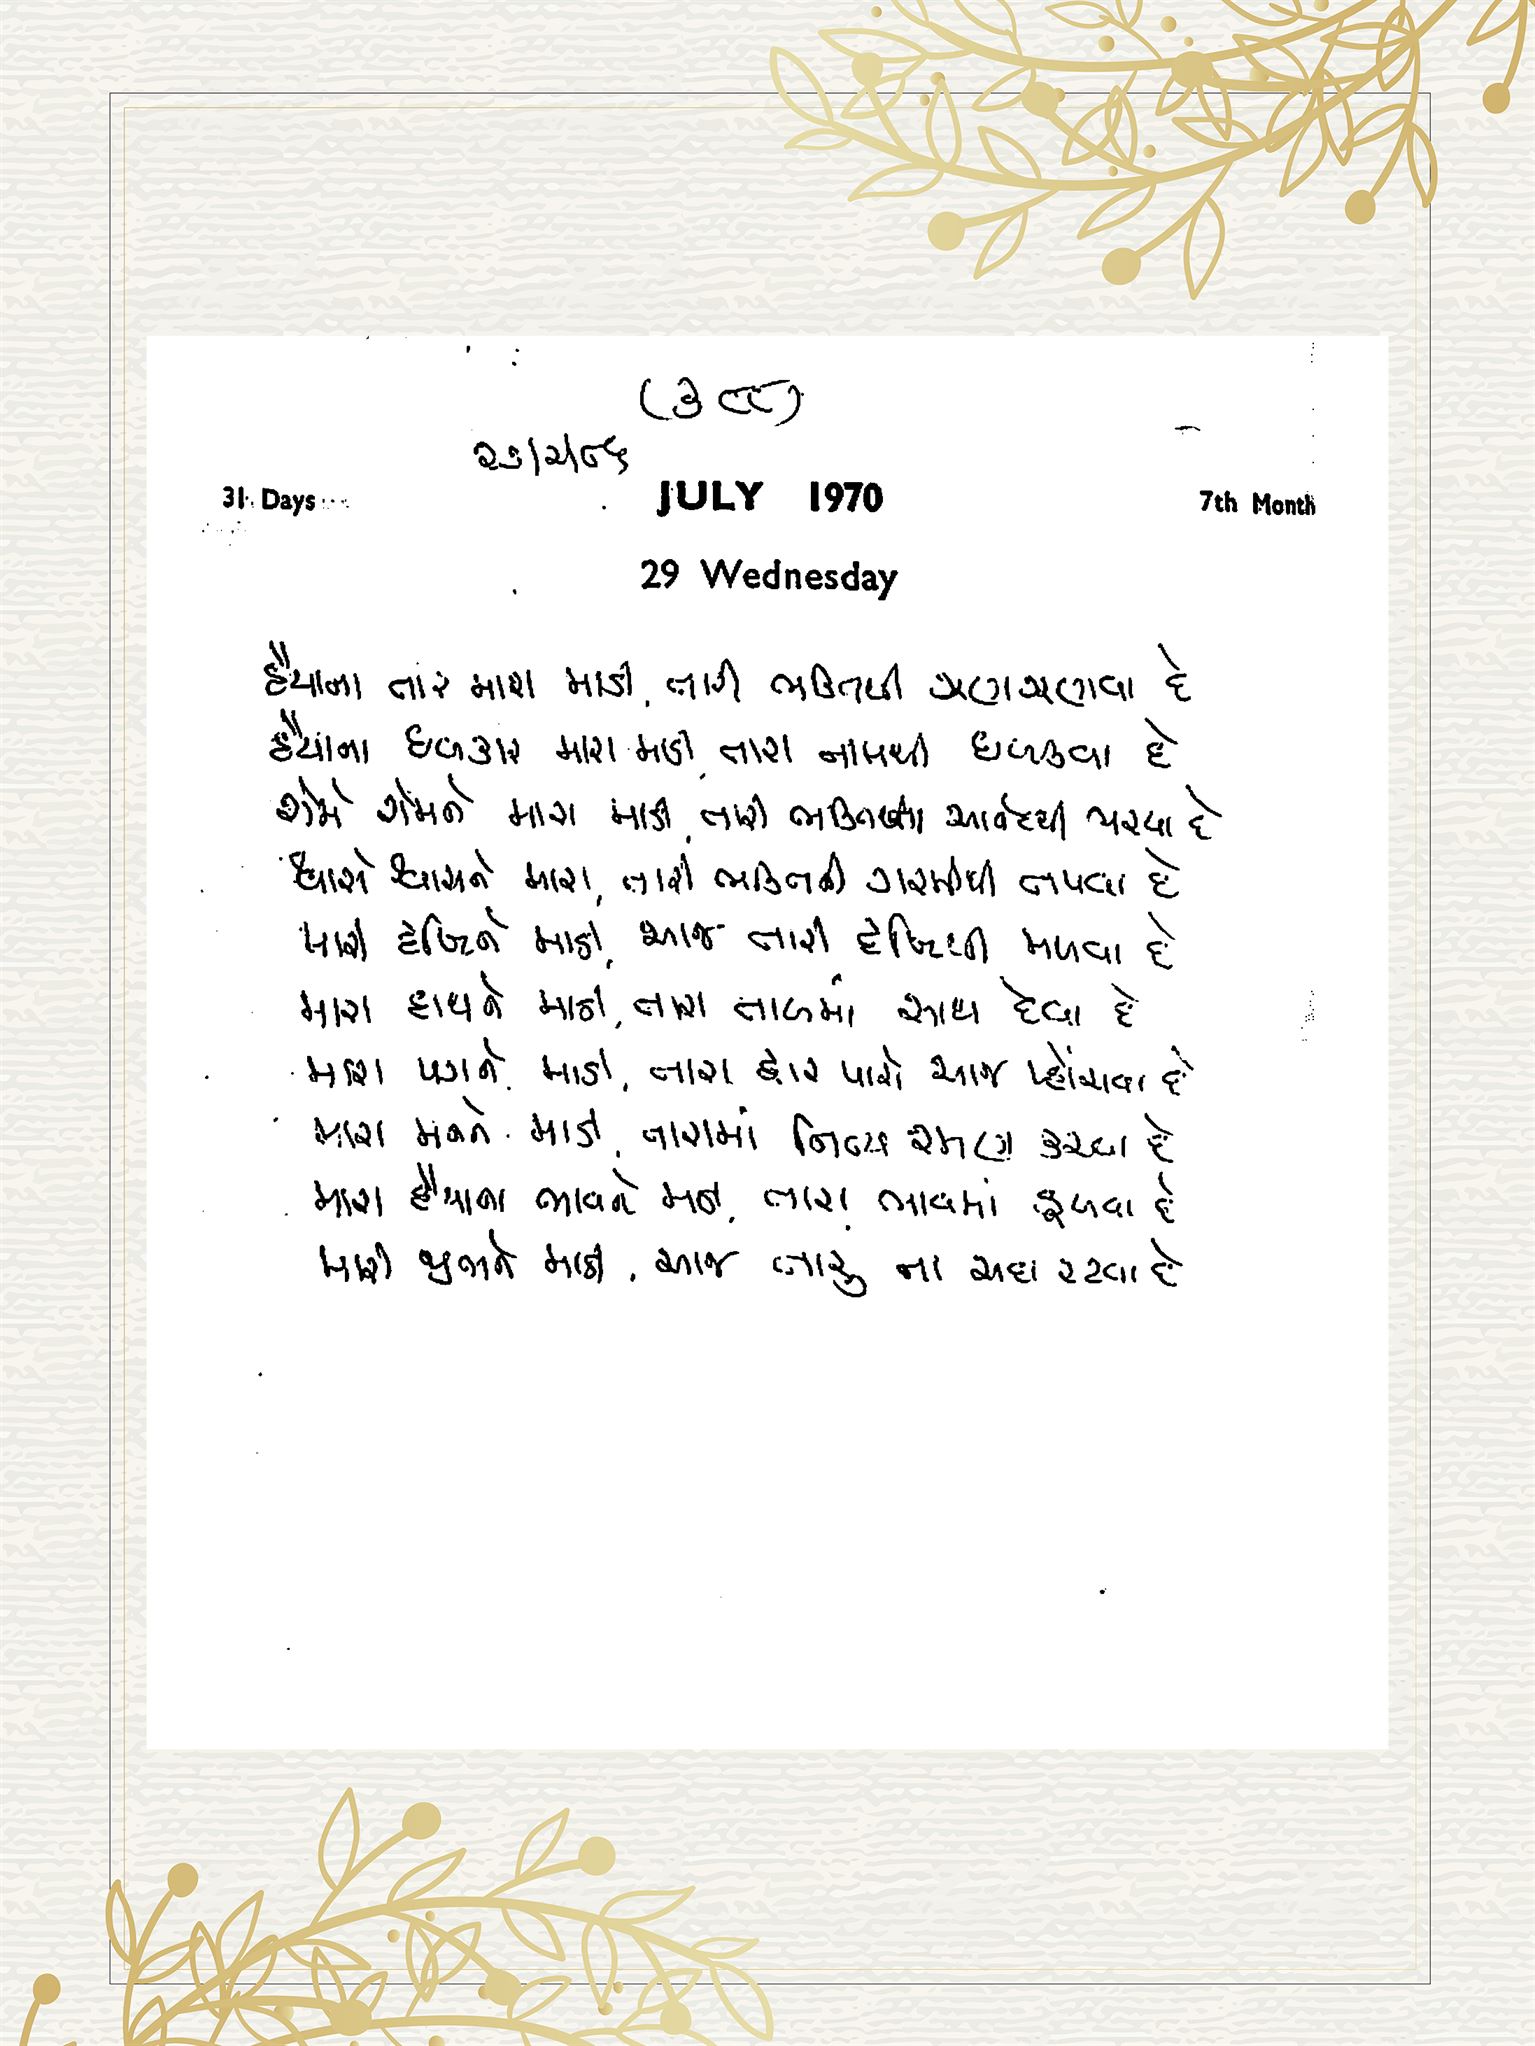 (૩૯૮)
૨૩/૨/૮૬
31 Days JULY 1970 7th Month
29 Wednesday
હૈયાના તાર મારા માડી, તારી ભક્તિથી ઝણઝણવા દે
હૈયાના ધબકાર મારા માડી, તારા નામથી ધબકવા દે
રોમે રોમને મારા માડી, તારી ભક્તિના આનંદથી ભરવા દે
શ્વાસે શ્વાસને મારા, તારી ભક્તિની ગરમીથી તપવા દે
મારી દૃષ્ટિને માડી, આજ તારી દૃષ્ટિથી મળવા દે
મારા હાથને માડી, તારા તાળમાં સાથ દેવા દે
મારા પગને માડી, તારા દ્વાર પાસે આજ પ્હોંચવા દે
મારા મનને માડી, તારામાં નિત્ય રમણ કરવા દે
મારા હૈયાના ભાવને માડી, તારા ભાવમાં ડૂબવા દે
મારી જીભને માડી, આજ તારું ના સદા રટવા દે